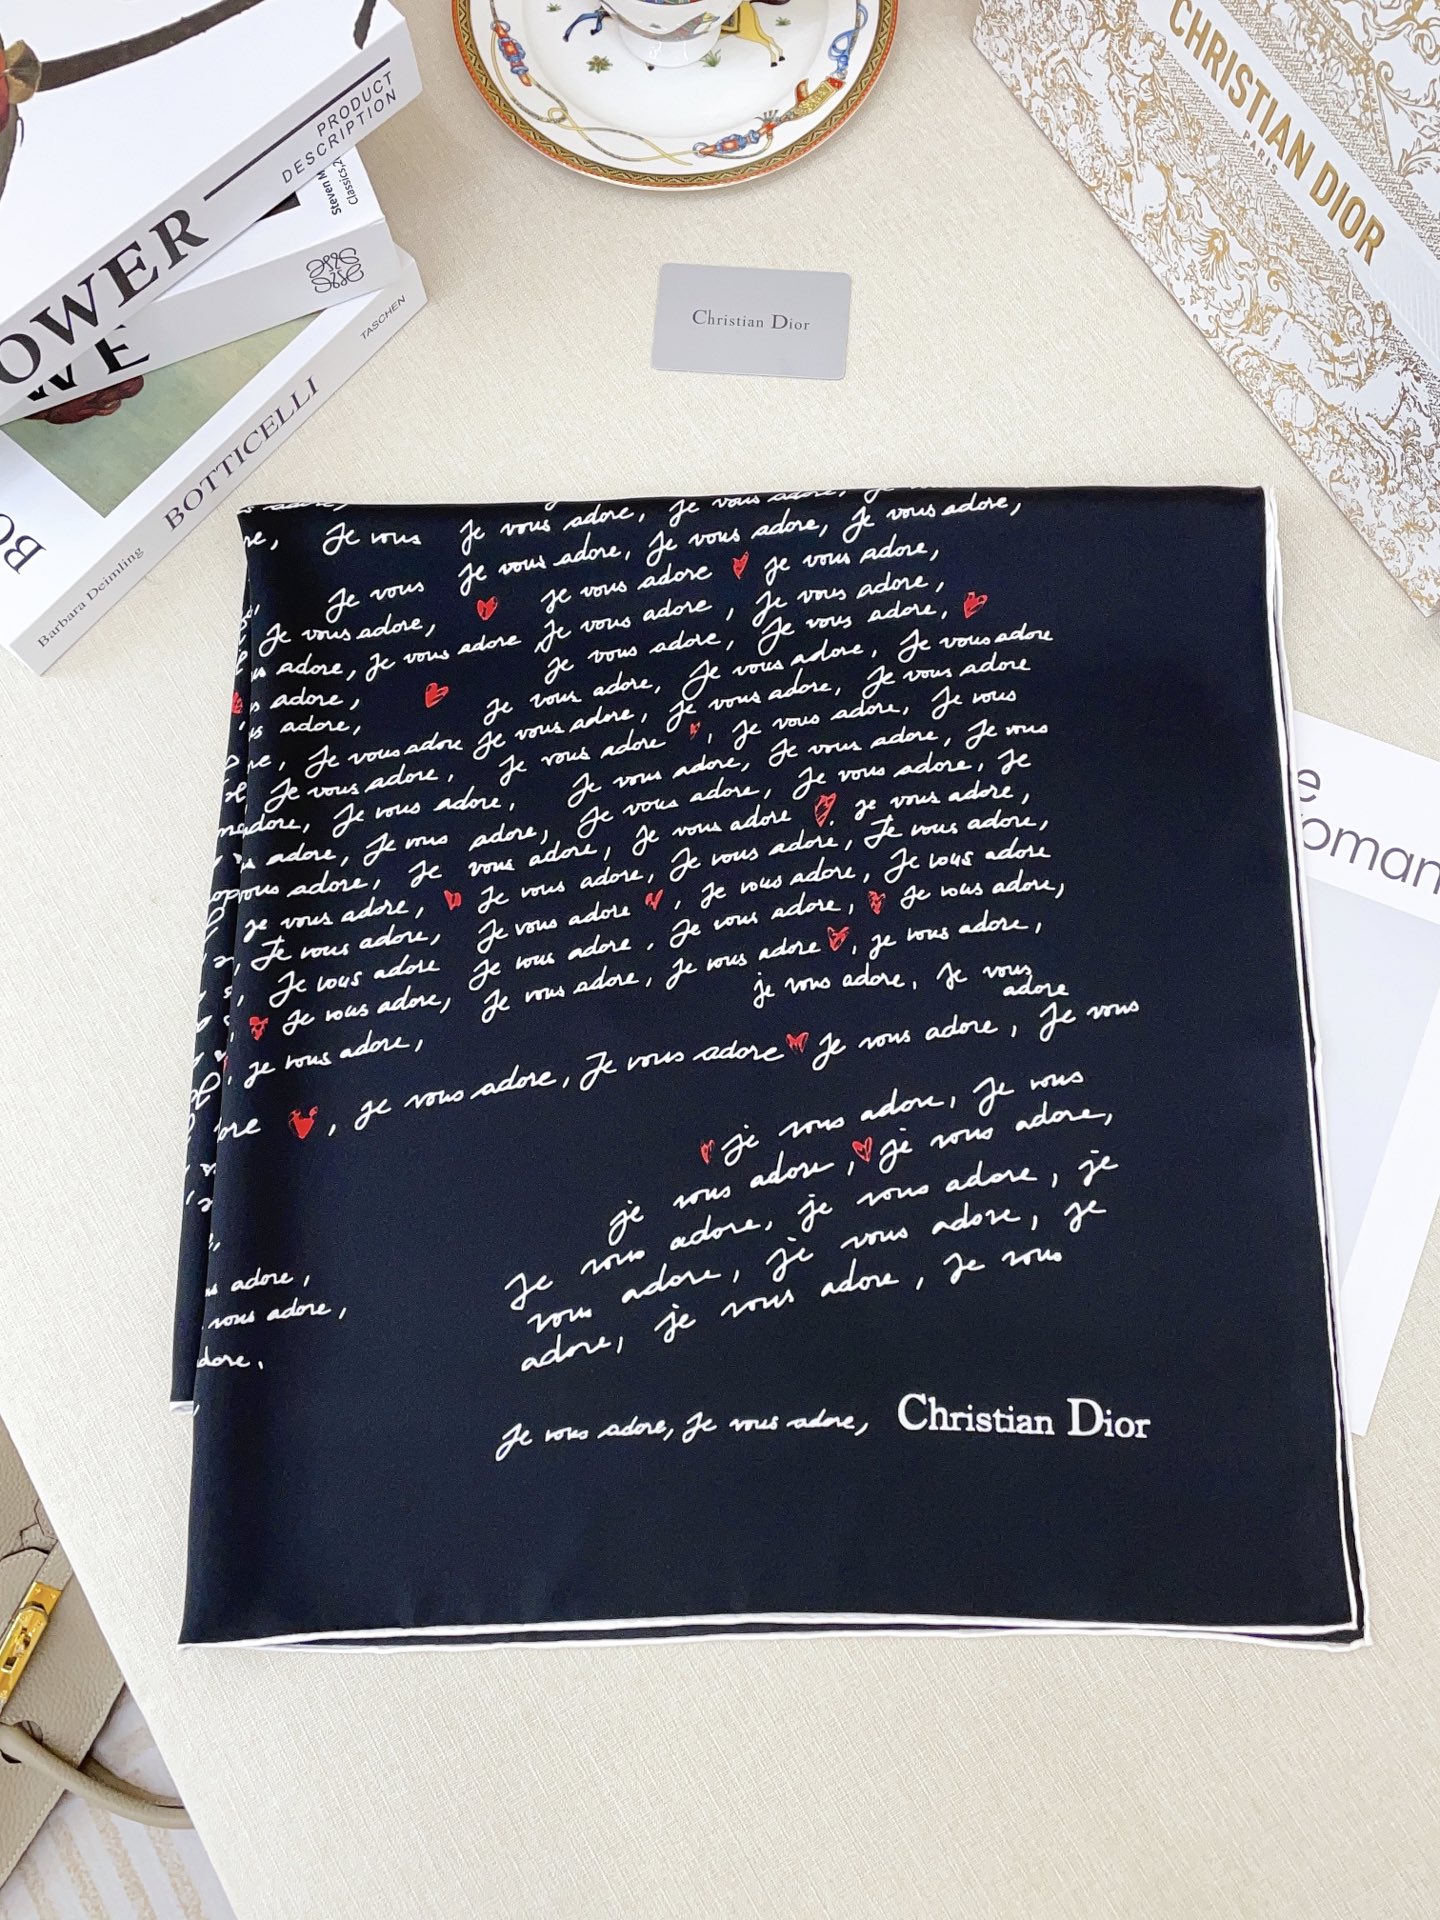 PRODUCT
DESCRIPTION
Steven M
Classics,2
OWER
WE
TASCHEN
BOTTICELLI
Barbara Deimling
BO
CHRISTIAN DIOR
PARIS
Christian Dior
e
oman
Je vous adore, Je vous adore,
re, Je vous Je vous adore, Je vous adore, Je vous adore,
Je vous Je vous adore, Je vous adore ♥ Je vous adore,
Je vous adore, ♥ Je vous adore, Je vous adore,
s adore, Je vous adore Je vous adore, Je vous adore, ♥
s adore, ♥ Je vous adore, Je vous adore, Je vous adore
s adore, Je vous adore, Je vous adore, Je vous adore
re, Je vous adore Je vous adore ♥, Je vous adore, Je vous
Je vous adore, Je vous adore, Je vous adore, Je vous
adore, Je vous adore, Je vous adore, Je vous adore, Je
s adore, Je vous adore, Je vous adore ♥, je vous adore,
vous adore, Je vous adore, Je vous adore, Je vous adore,
je vous adore, ♥ Je vous adore ♥, Je vous adore, Je vous adore
Je vous adore, Je vous adore, Je vous adore, ♥ Je vous adore,
Je vous adore Je vous adore, Je vous adore ♥, je vous adore,
♥ Je vous adore, je vous adore, Je vous
adore
je vous adore,
ore ♥, je vous adore, Je vous adore ♥ Je vous adore, Je vous
♥ je vous adore, Je vous
je vous adore, ♥ je vous adore,
Je vous adore, je vous adore, je
vous adore, je vous adore, je
adore, je vous adore, Je vous
s adore,
vous adore,
dore,
Je vous adore, Je vous adore, Christian Dior